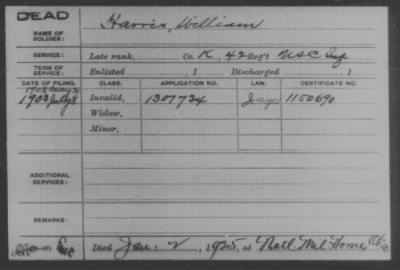 DEAD
NAME OF SOLDIER: Harris, William
SERVICE: Late rank, Co. K, 42 Reg't USC Inf
TERM OF SERVICE: Enlisted , 1 Discharged , 1
DATE OF FILING. CLASS. APPLICATION NO. LAW. CERTIFICATE NO.
1903 July 8 Invalid, 1307734 1150690
Widow,
Minor,
ADDITIONAL SERVICES:
REMARKS:
Died Jan. 2, 1925, at Natl Mil Home